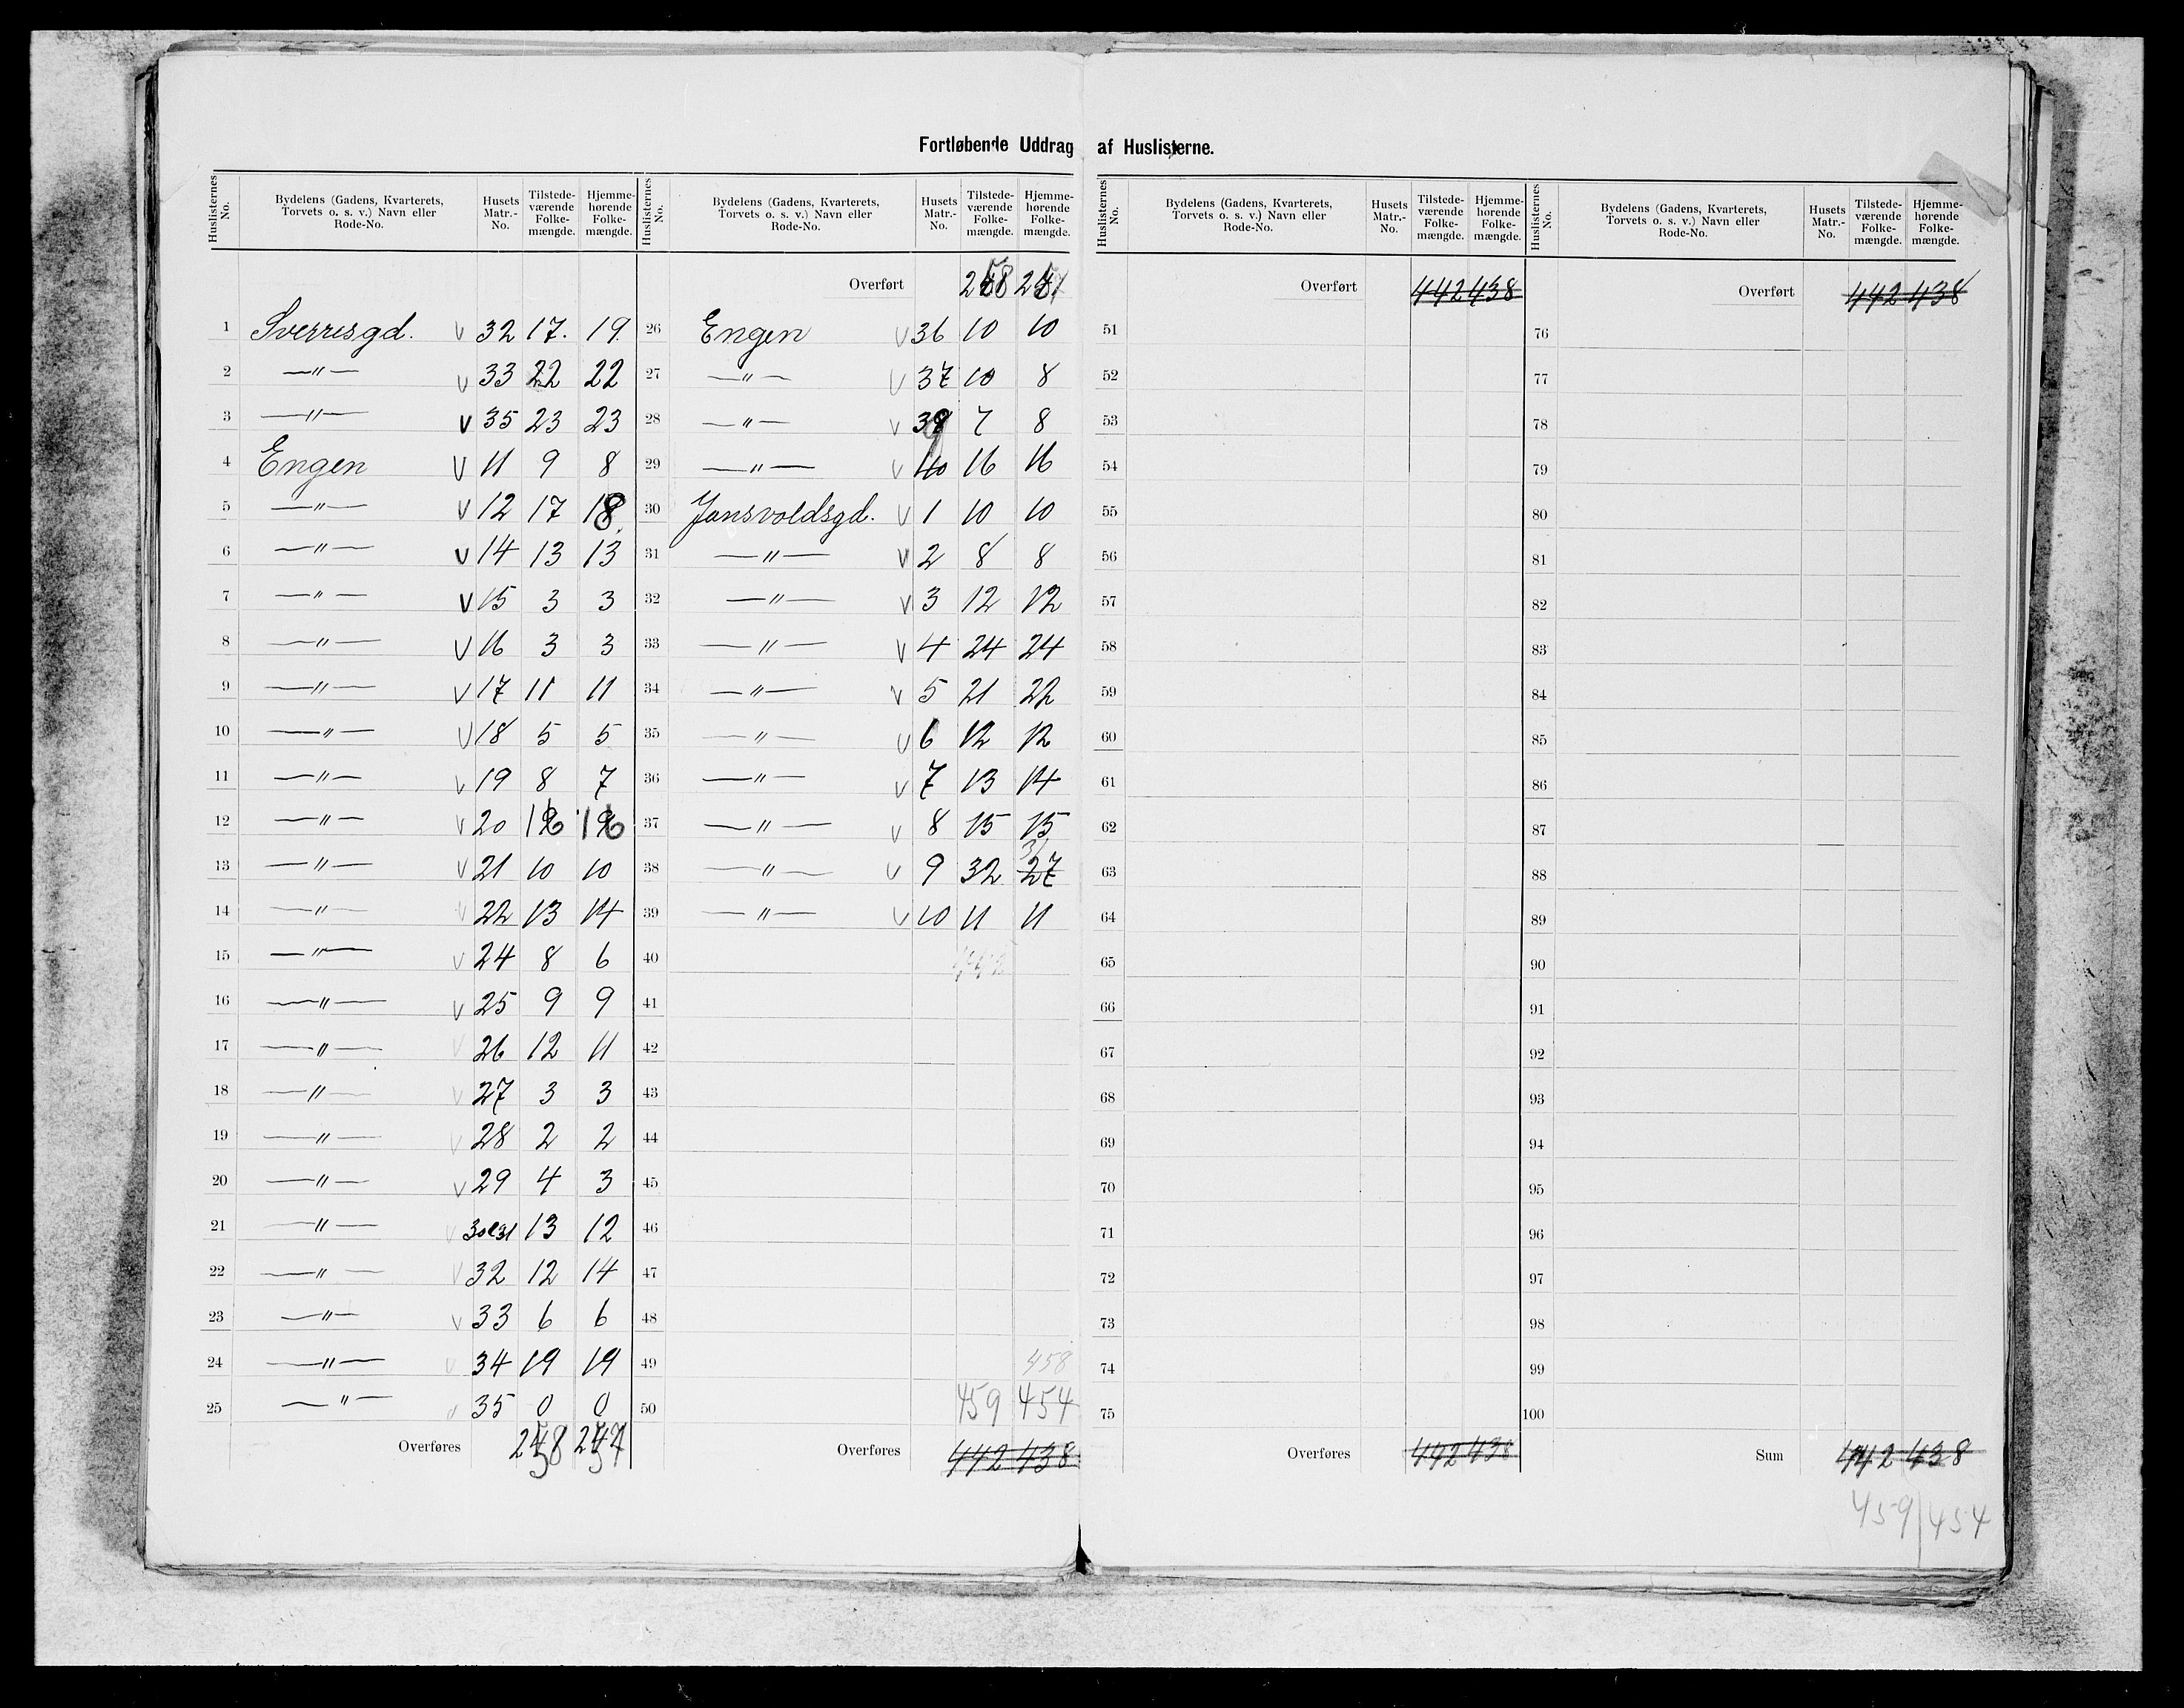 Fortløbende Uddrag af Huslisterne.
Huslisternes No. | Bydelens (Gadens, Kvarterets, Torvets o. s. v.) Navn eller Rode-No. | Husets Matr.-No. | Tilstede-værende Folke-mængde. | Hjemme-hørende Folke-mængde.
1 Sverresgd. V 32 17. 19.
2 —"— V 33 22 22
3 —"— V 35 23 23
4 Engen V 11 9 8
5 —"— V 12 17 18
6 —"— V 14 13 13
7 —"— V 15 3 3
8 —"— V 16 3 3
9 —"— V 17 11 11
10 —"— V 18 5 5
11 —"— V 19 8 7
12 —"— V 20 16 16
13 —"— V 21 10 10
14 —"— V 22 13 14
15 —"— V 24 8 6
16 —"— V 25 9 9
17 —"— V 26 12 11
18 —"— V 27 3 3
19 —"— V 28 2 2
20 —"— V 29 4 3
21 —"— V 30&31 13 12
22 —"— V 32 12 14
23 —"— V 33 6 6
24 —"— V 34 19 19
25 —"— V 35 0 0
Overføres 258 257
Huslisternes No. | Bydelens (Gadens, Kvarterets, Torvets o. s. v.) Navn eller Rode-No. | Husets Matr.-No. | Tilstede-værende Folke-mængde. | Hjemme-hørende Folke-mængde.
Overført 258
26 Engen V 36 10 10
27 —"— V 37 10 8
28 —"— V 39 7 8
29 —"— V 40 16 16
30 Jonsvoldsgd. V 1 10 10
31 —"— V 2 8 8
32 —"— V 3 12 12
33 —"— V 4 24 24
34 —"— V 5 21 22
35 —"— V 6 12 12
36 —"— V 7 13 14
37 —"— V 8 15 15
38 —"— V 9 32 27 31
39 —"— V 10 11 11
40 442
41
42
43
44
45
46
47
48
49 458
50 459 454
Overføres 442 438
Huslisternes No. | Bydelens (Gadens, Kvarterets, Torvets o. s. v.) Navn eller Rode-No. | Husets Matr.-No. | Tilstede-værende Folke-mængde. | Hjemme-hørende Folke-mængde.
Overført 442 438
51
52
53
54
55
56
57
58
59
60
61
62
63
64
65
66
67
68
69
70
71
72
73
74
75
Overføres 442 438
Huslisternes No. | Bydelens (Gadens, Kvarterets, Torvets o. s. v.) Navn eller Rode-No. | Husets Matr.-No. | Tilstede-værende Folke-mængde. | Hjemme-hørende Folke-mængde.
Overført 442 438
76
77
78
79
80
81
82
83
84
85
86
87
88
89
90
91
92
93
94
95
96
97
98
99
100
Sum 442 438
459 | 454